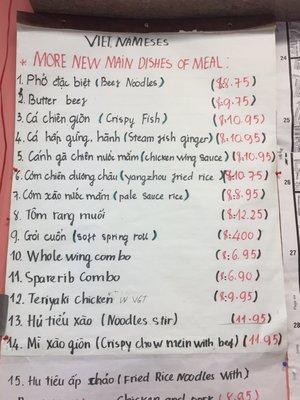 VIET NAMESES
* MORE NEW MAIN DISHES OF MEAL :
1. Phở đặc biệt (Beef Noodles) ($8.75)
2. Butter beef ($9.75)
3. Cá chiên giòn (Crispy Fish) ($.10.95)
4. Cá hấp gừng, hành (Steam fish ginger) ($.10.95)
5. Cánh gà chiên nước mắm (chicken wing sauce) ($.10.95)
6. Cơm chiên dương châu (yangzhou fried rice) ($10.75)
7. Cơm xào nước mắm (pale sauce rice) ($.8.95)
8. Tôm rang muối ($.12.25)
9. Gỏi cuốn (soft spring roll) ($.400)
10. Whole wing combo ($.6.95)
11. Sparerib combo ($.6.90)
12. Teriyaki chicken W VGT ($.9.95)
13. Hủ tiếu xào (Noodles stir) (11.95)
14. Mì xào giòn (Crispy chow mein with beef) (11.95)
15. Hu tiếu áp chảo (Fried Rice Noodles With)
Chicken and
8.95